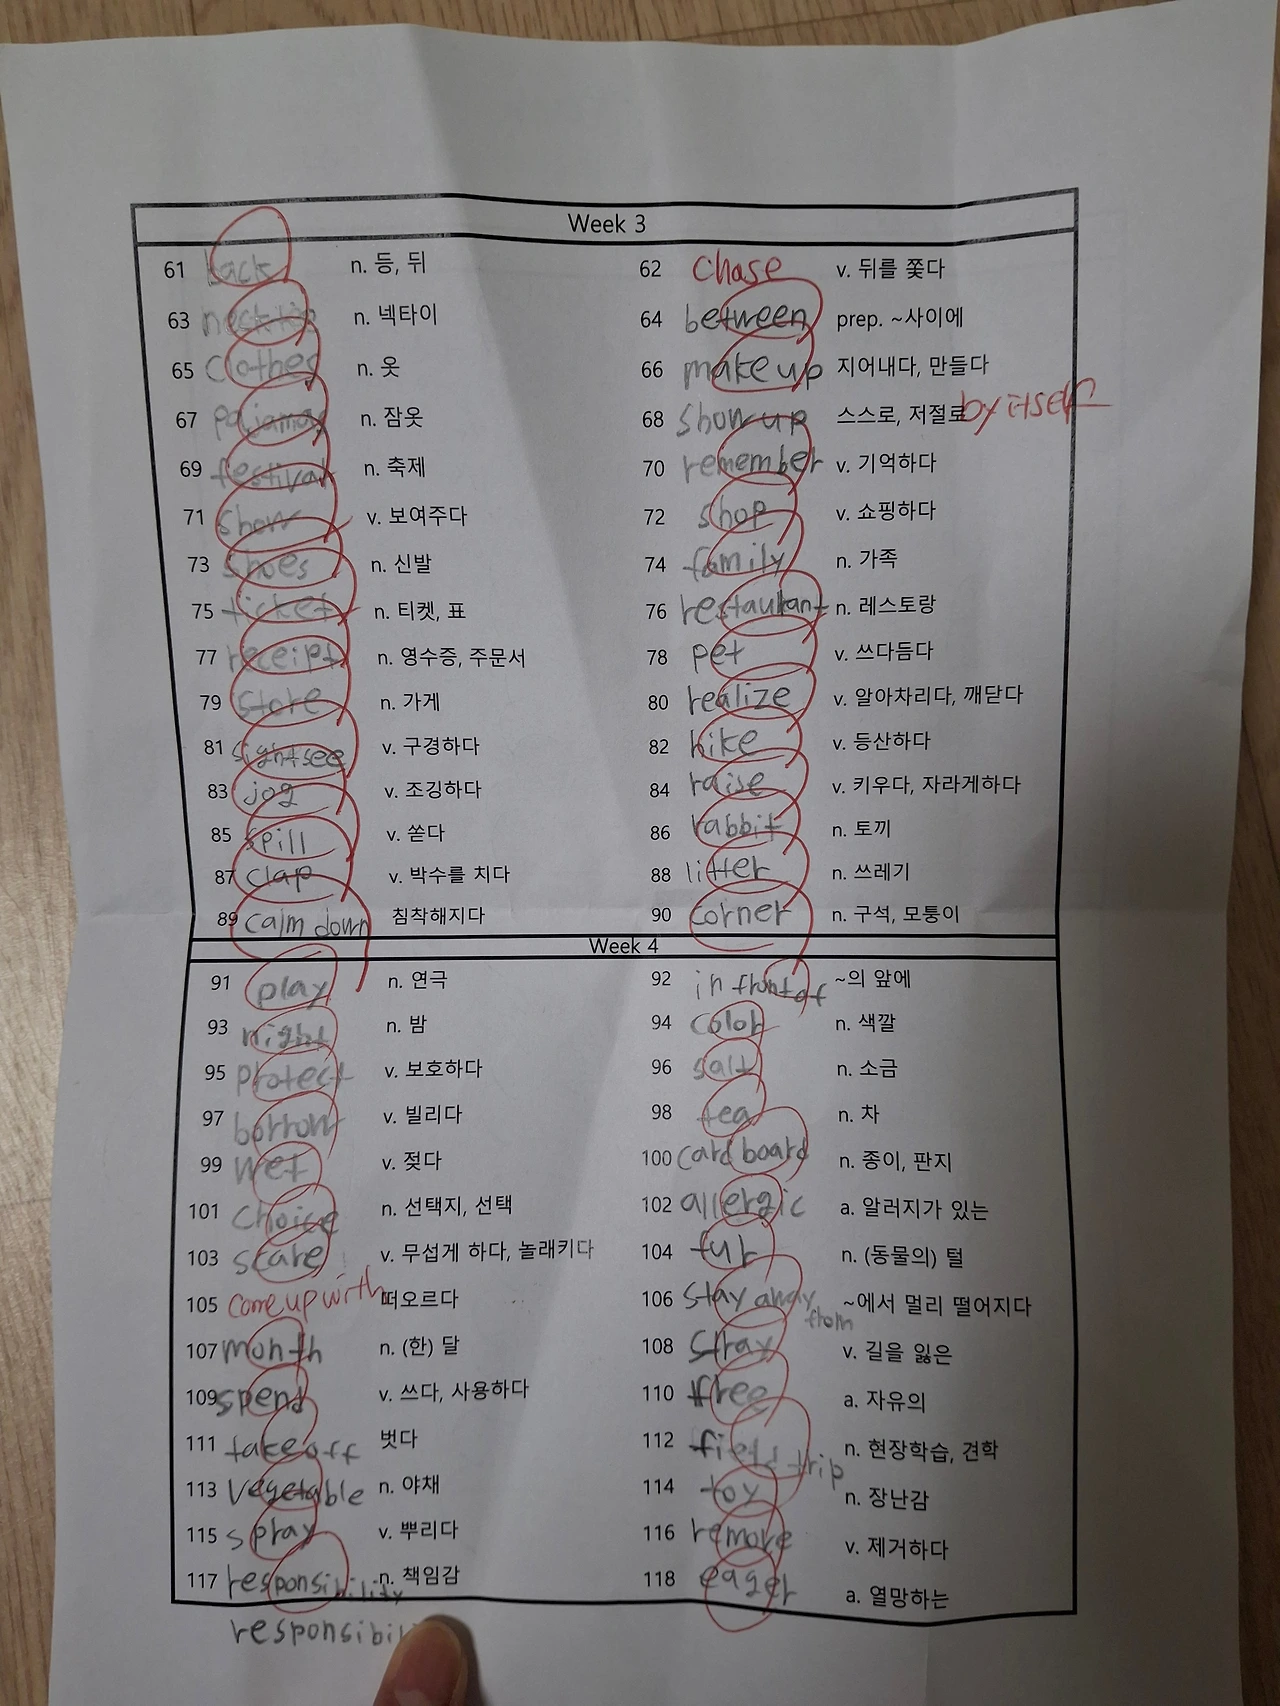 Week 3
61 back n. 등, 뒤 62 chase v. 뒤를 쫓다
63 necktie n. 넥타이 64 between prep. ~사이에
65 clothes n. 옷 66 make up 지어내다, 만들다
67 pajamas n. 잠옷 68 show up 스스로, 저절로 by itself
69 festival n. 축제 70 remember v. 기억하다
71 show v. 보여주다 72 shop v. 쇼핑하다
73 shoes n. 신발 74 family n. 가족
75 ticket n. 티켓, 표 76 restaurant n. 레스토랑
77 receipt n. 영수증, 주문서 78 pet v. 쓰다듬다
79 store n. 가게 80 realize v. 알아차리다, 깨닫다
81 sightsee v. 구경하다 82 hike v. 등산하다
83 jog v. 조깅하다 84 raise v. 키우다, 자라게하다
85 spill v. 쏟다 86 rabbit n. 토끼
87 clap v. 박수를 치다 88 litter n. 쓰레기
89 calm down 침착해지다 90 corner n. 구석, 모퉁이
Week 4
91 play n. 연극 92 in front of ~의 앞에
93 night n. 밤 94 color n. 색깔
95 protect v. 보호하다 96 salt n. 소금
97 borrow v. 빌리다 98 tea n. 차
99 wet v. 젖다 100 card board n. 종이, 판지
101 choice n. 선택지, 선택 102 allergic a. 알러지가 있는
103 scare v. 무섭게 하다, 놀래키다 104 fur n. (동물의) 털
105 come up with 떠오르다 106 stay away from ~에서 멀리 떨어지다
107 month n. (한) 달 108 stray v. 길을 잃은
109 spend v. 쓰다, 사용하다 110 free a. 자유의
111 take off 벗다 112 field trip n. 현장학습, 견학
113 vegetable n. 야채 114 toy n. 장난감
115 spray v. 뿌리다 116 remove v. 제거하다
117 responsibility n. 책임감 118 eager a. 열망하는
responsibil